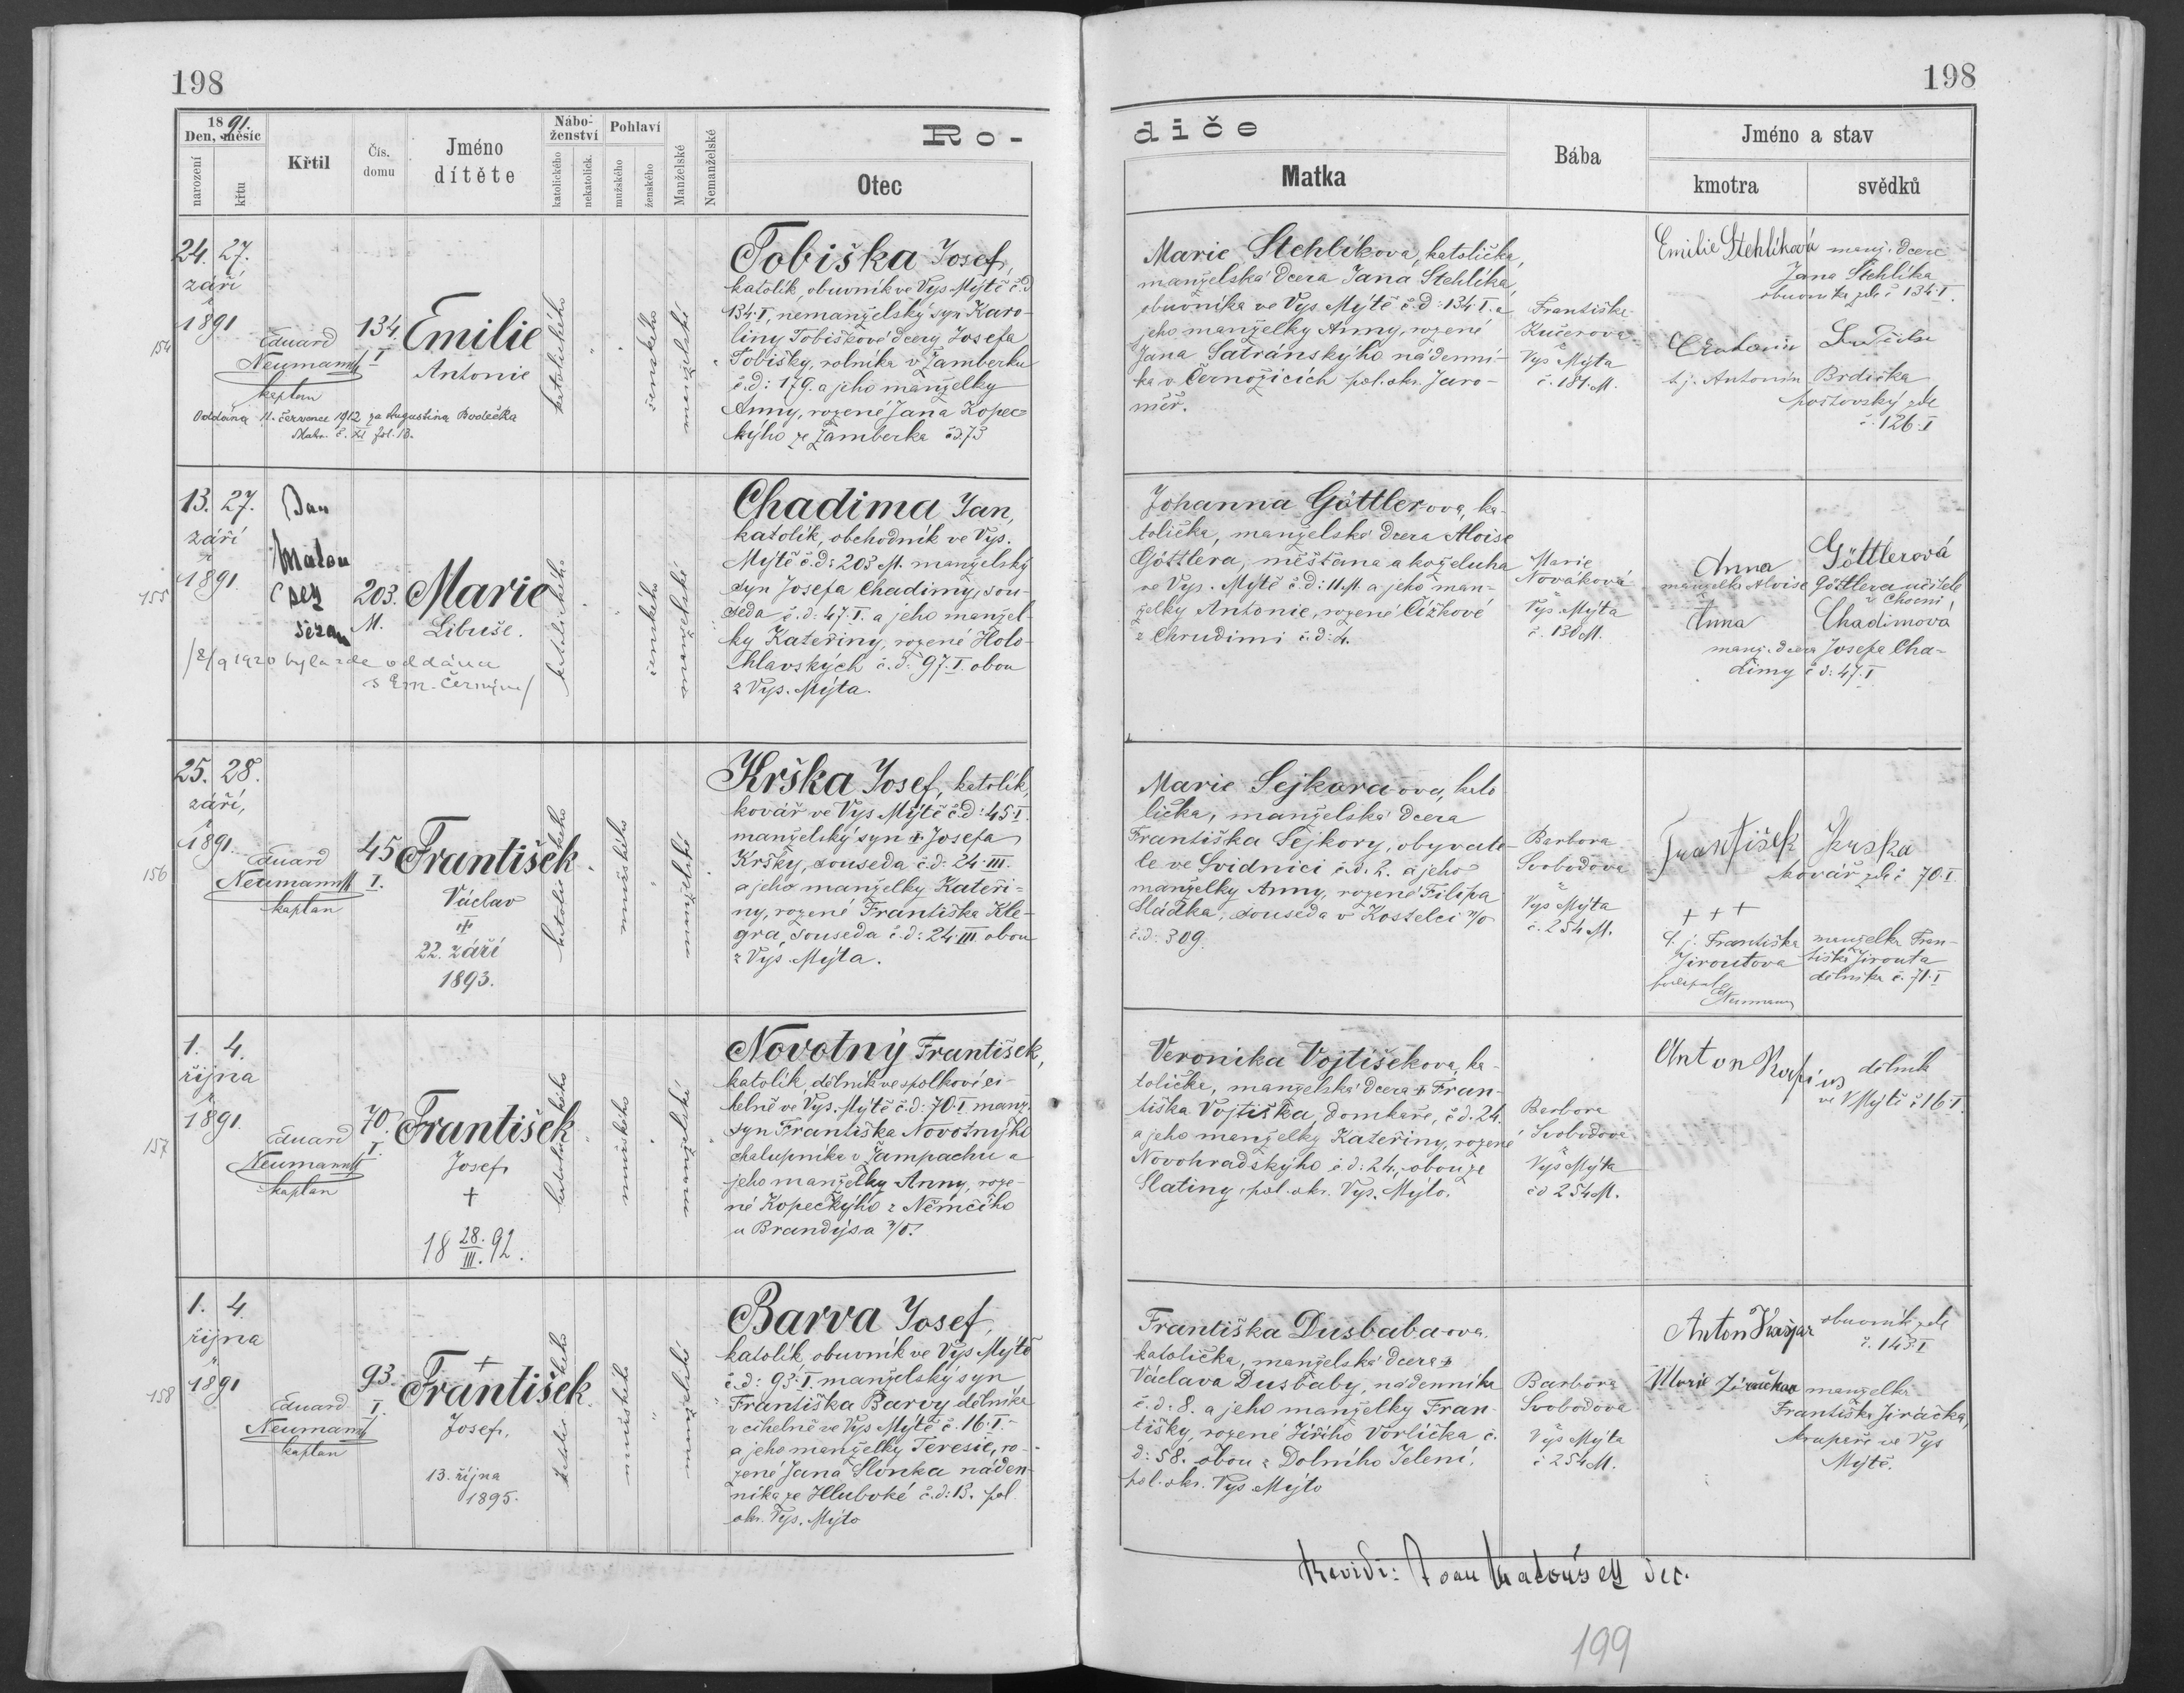 198
198
1891.
Den, měsíc
narození
křtu
Křtil
Čís. domu
Jméno
dítěte
Nábo-
ženství
katolického
nekatolick.
Pohlaví
mužského
ženského
Manželské
Nemanželské
Ro-
Otec
diče
Matka
Bába
Jméno a stav
kmotra
svědků
154
24. 27.
září
1891
Eduard
Neumann
kaplan
134.
I
Emilie
Antonie
Oddána 11. července 1912 za Augustina Bodečka
Matr. č. XI fol. 13.
katolického
ženského
manželské
Tobiška Josef,
katolík, obuvník ve Vys. Mýtě č.d
134·I, nemanželský syn Karo-
liny Tobiškové dcery Josefa
Tobišky, rolníka v Žamberku
č.d: 179. a jeho manželky
Anny, rozené Jana Kopec-
kýho ze Žamberka čd 73
Marie Stehlíkova, katolička,
manželská dcera Jana Stehlíka,
obuvníka ve Vys. Mýtě č.d: 134·I. a
jeho manželky Anny, rozené
Jana Satránskýho nádenní-
ka v Černožicích pol. okr. Jaro-
měř.
Františka
Kučerova
z
Vys Mýta
č. 181. M.
Emilie Stehlíková manž. dcera
Jana Stehlíka
obuvníka zde č 134·I.
t.j. Antonín Brdička
pošťovský zde
č. 126·I
155
13. 27.
září
1891
Jan
Matou
sek
děkan
203.
M.
Marie
Libuše.
/8/9 1920 byla zde oddána
s Em. Černým/
katolického
ženského
manželské
Chadima Jan,
katolík, obchodník ve Vys.
Mýtě č.d: 203 M. manželský
syn Josefa Chadimy, sou-
seda č.d: 47·I. a jeho manžel-
ky Kateřiny, rozené Holo-
hlavských č.d: 97·I. obou
z Vys. Mýta.
Johanna Göttlerova, ka-
tolička, manželská dcera Aloise
Göttlera, měšťana a koželuha
ve Vys. Mýtě č.d: 11. M. a jeho man-
želky Antonie, rozené Čížkové
z Chrudimi č.d: 4.
Marie
Nováková
z
Vys. Mýta
č. 130 M.
Anna Göttlerová
manželka Aloise Göttlera učitele
z Chocni
Anna Chadimova
manž. dcera Josefa Cha-
dimy č d: 47·I
156
25. 28.
září,
1891.
Eduard
Neumann
kaplan
45
I.
František
Václav
†
22. září
1893.
katolického
mužského
manželské
Krška Josef, katolík,
kovář ve Vys Mýtě č.d: 45·I.
manželský syn † Josefa
Kršky, souseda č.d: 24·III.
a jeho manželky Kateři-
ny, rozené Františka Kle-
gra, souseda č.d: 24·III. obou
z Vys. Mýta.
Marie Sejkora ova, kato
lička, manželská dcera
Františka Sejkory, obyvate-
le ve Svidnici č.d. 2. a jeho
manželky Anny, rozené Filipa
Sládka, souseda v Kostelci n/O
č.d: 309.
Barbora
Svobodova
z
Vys Mýta
č. 254 M.
František Krska
kovář zde č 70·I
+ + +
t. j. Františka manželka Fran-
Jiroutova tiška Jirouta
dělníka č. 71·I
Neumann
157
1. 4.
října
1891.
Eduard
Neumann
kaplan
70.
I.
František
Josef,
†
18 28./III. 92.
katolického
mužského
manželské
Novotný František,
katolík, dělník ve spolkové ci-
helně ve Vys. Mýtě č.d: 70·I. manž.
syn Františka Novotnýho
chalupníka v Žampachu a
jeho manželky Anny, roze-
né Kopeckýho z Němčího
u Brandýsa n/O.
Veronika Vojtíšekova, ka-
tolička, manželská dcera † Fran-
tiška Vojtíška, domkaře, č.d. 24.
a jeho manželky Kateřiny, rozené
Novohradskýho č d: 24., obou ze
Slatiny, pol. okr. Vys. Mýto.
Barbora
Svobodova
z
Vys Mýta
čd 254 M.
Anton dělník
ve V Mýtě č 16·I.
158
1. 4.
října
1891
Eduard
Neumann
kaplan
93.
I.
†
František
Josef,
13. října
1895.
katolického
mužského
manželské
Barva Josef,
katolík, obuvník ve Vys Mýtě
č.d: 93·I. manželský syn
Františka Barvy dělníka
v cihelně ve Vys Mýtě č. 16·I.
a jeho manželky Teresie, ro-
zené Jana Slonka náden-
níka ze Hluboké č.d: 13. pol.
okr. Vys. Mýto
Františka Dusbaba-ova.
katolička, manželská dcera †
Václava Dusbaby, nádenníka
č.d: 8. a jeho manželky Fran-
tišky, rozené Jiřího Vorlíčka č.
d: 58. obou z Dolního Jelení.
pol. okr. Vys Mýto
Barbora
Svobodova
z
Vys Mýta
č 254 M.
Anton Kašpar obuvník zde
č. 143·I
Marie Jiračkova manželka
Františka Jiráčka,
krupaře ve Vys
Mýtě.
Revidi: Joan Matoušek děk.
199